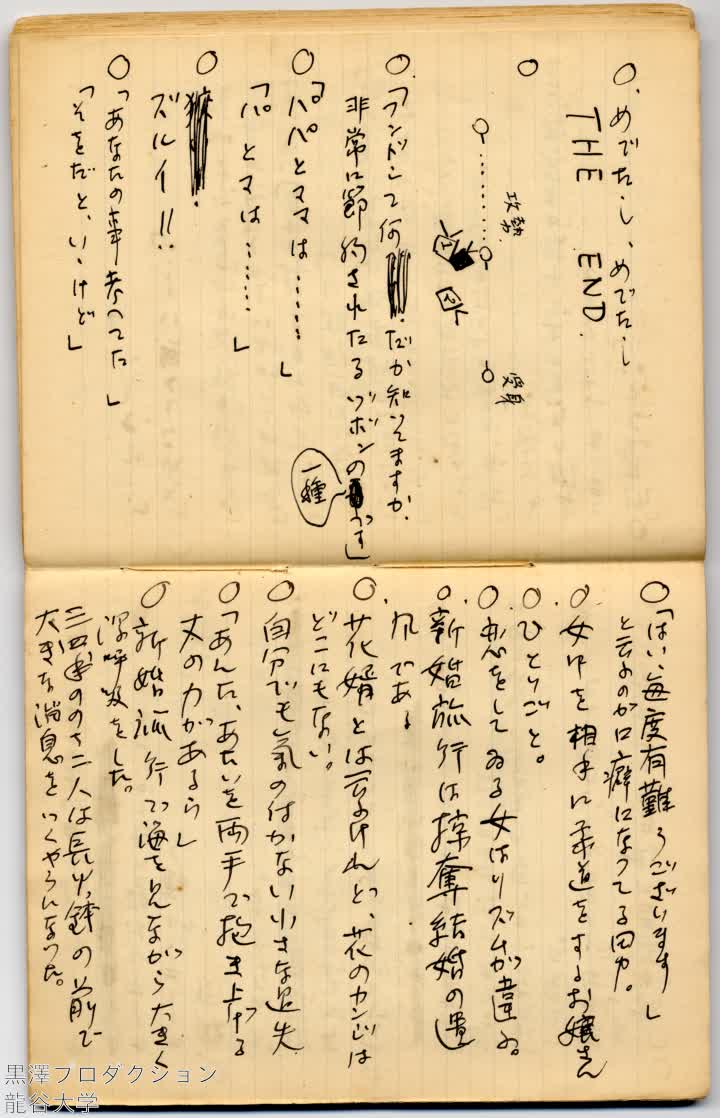 ○、めでたし、めでたし
THE END.
○
攻勢
受身
○「フンドシって何だか知ってますか、
非常に節約されたるヅボンの一種っす」
○「パパとママは……」
「パとマは……」
○
ズルイ!!
○「あなたの事考へてた」
「そをだと、いゝけど」
○「はい、毎度有難うございます」
と云ふのが口癖になってる田力。
○女中を相手に柔道をするお嬢さん
○ひとりごと。
○恋をしてゐる女はリズムが違ふ。
○新婚旅行は掠奪結婚の遺
風である
○花婿とは云ふけれど、花のカンジは
どこにもない。
○自分でも氣の付かない小さな過失
○「あんた、あたいを両手で抱き上げる
丈の力があるら」
○新婚旅行で海を見ながら大きく
深呼吸をした。
三四年ののち二人は長火鉢の前で
大きな溜息をつくやうになった。
黒澤プロダクション
龍谷大学